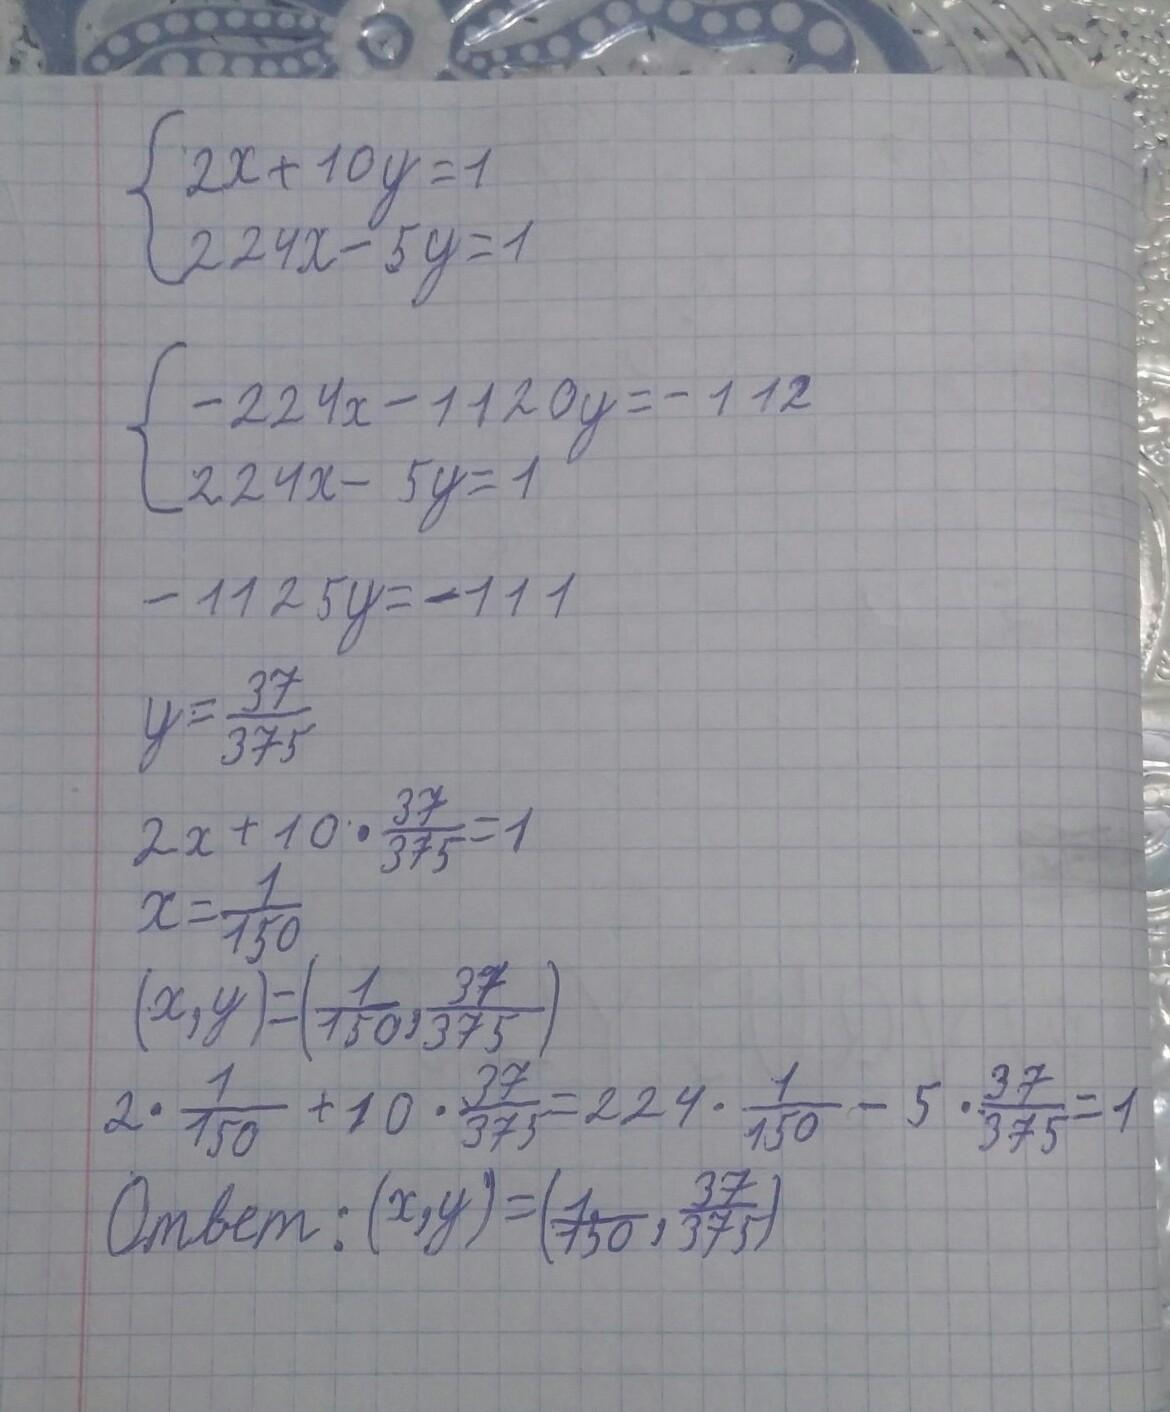 {2x+10y=1
224x-5y=1
{-224x-1120y=-112
224x-5y=1
-1125y=-111
y=37/375
2x+10·37/375=1
x=1/150
(x,y)=(1/150,37/375)
2·1/150+10·37/375=224·1/150-5·37/375=1
Ответ:(x,y)=(1/150,37/375)